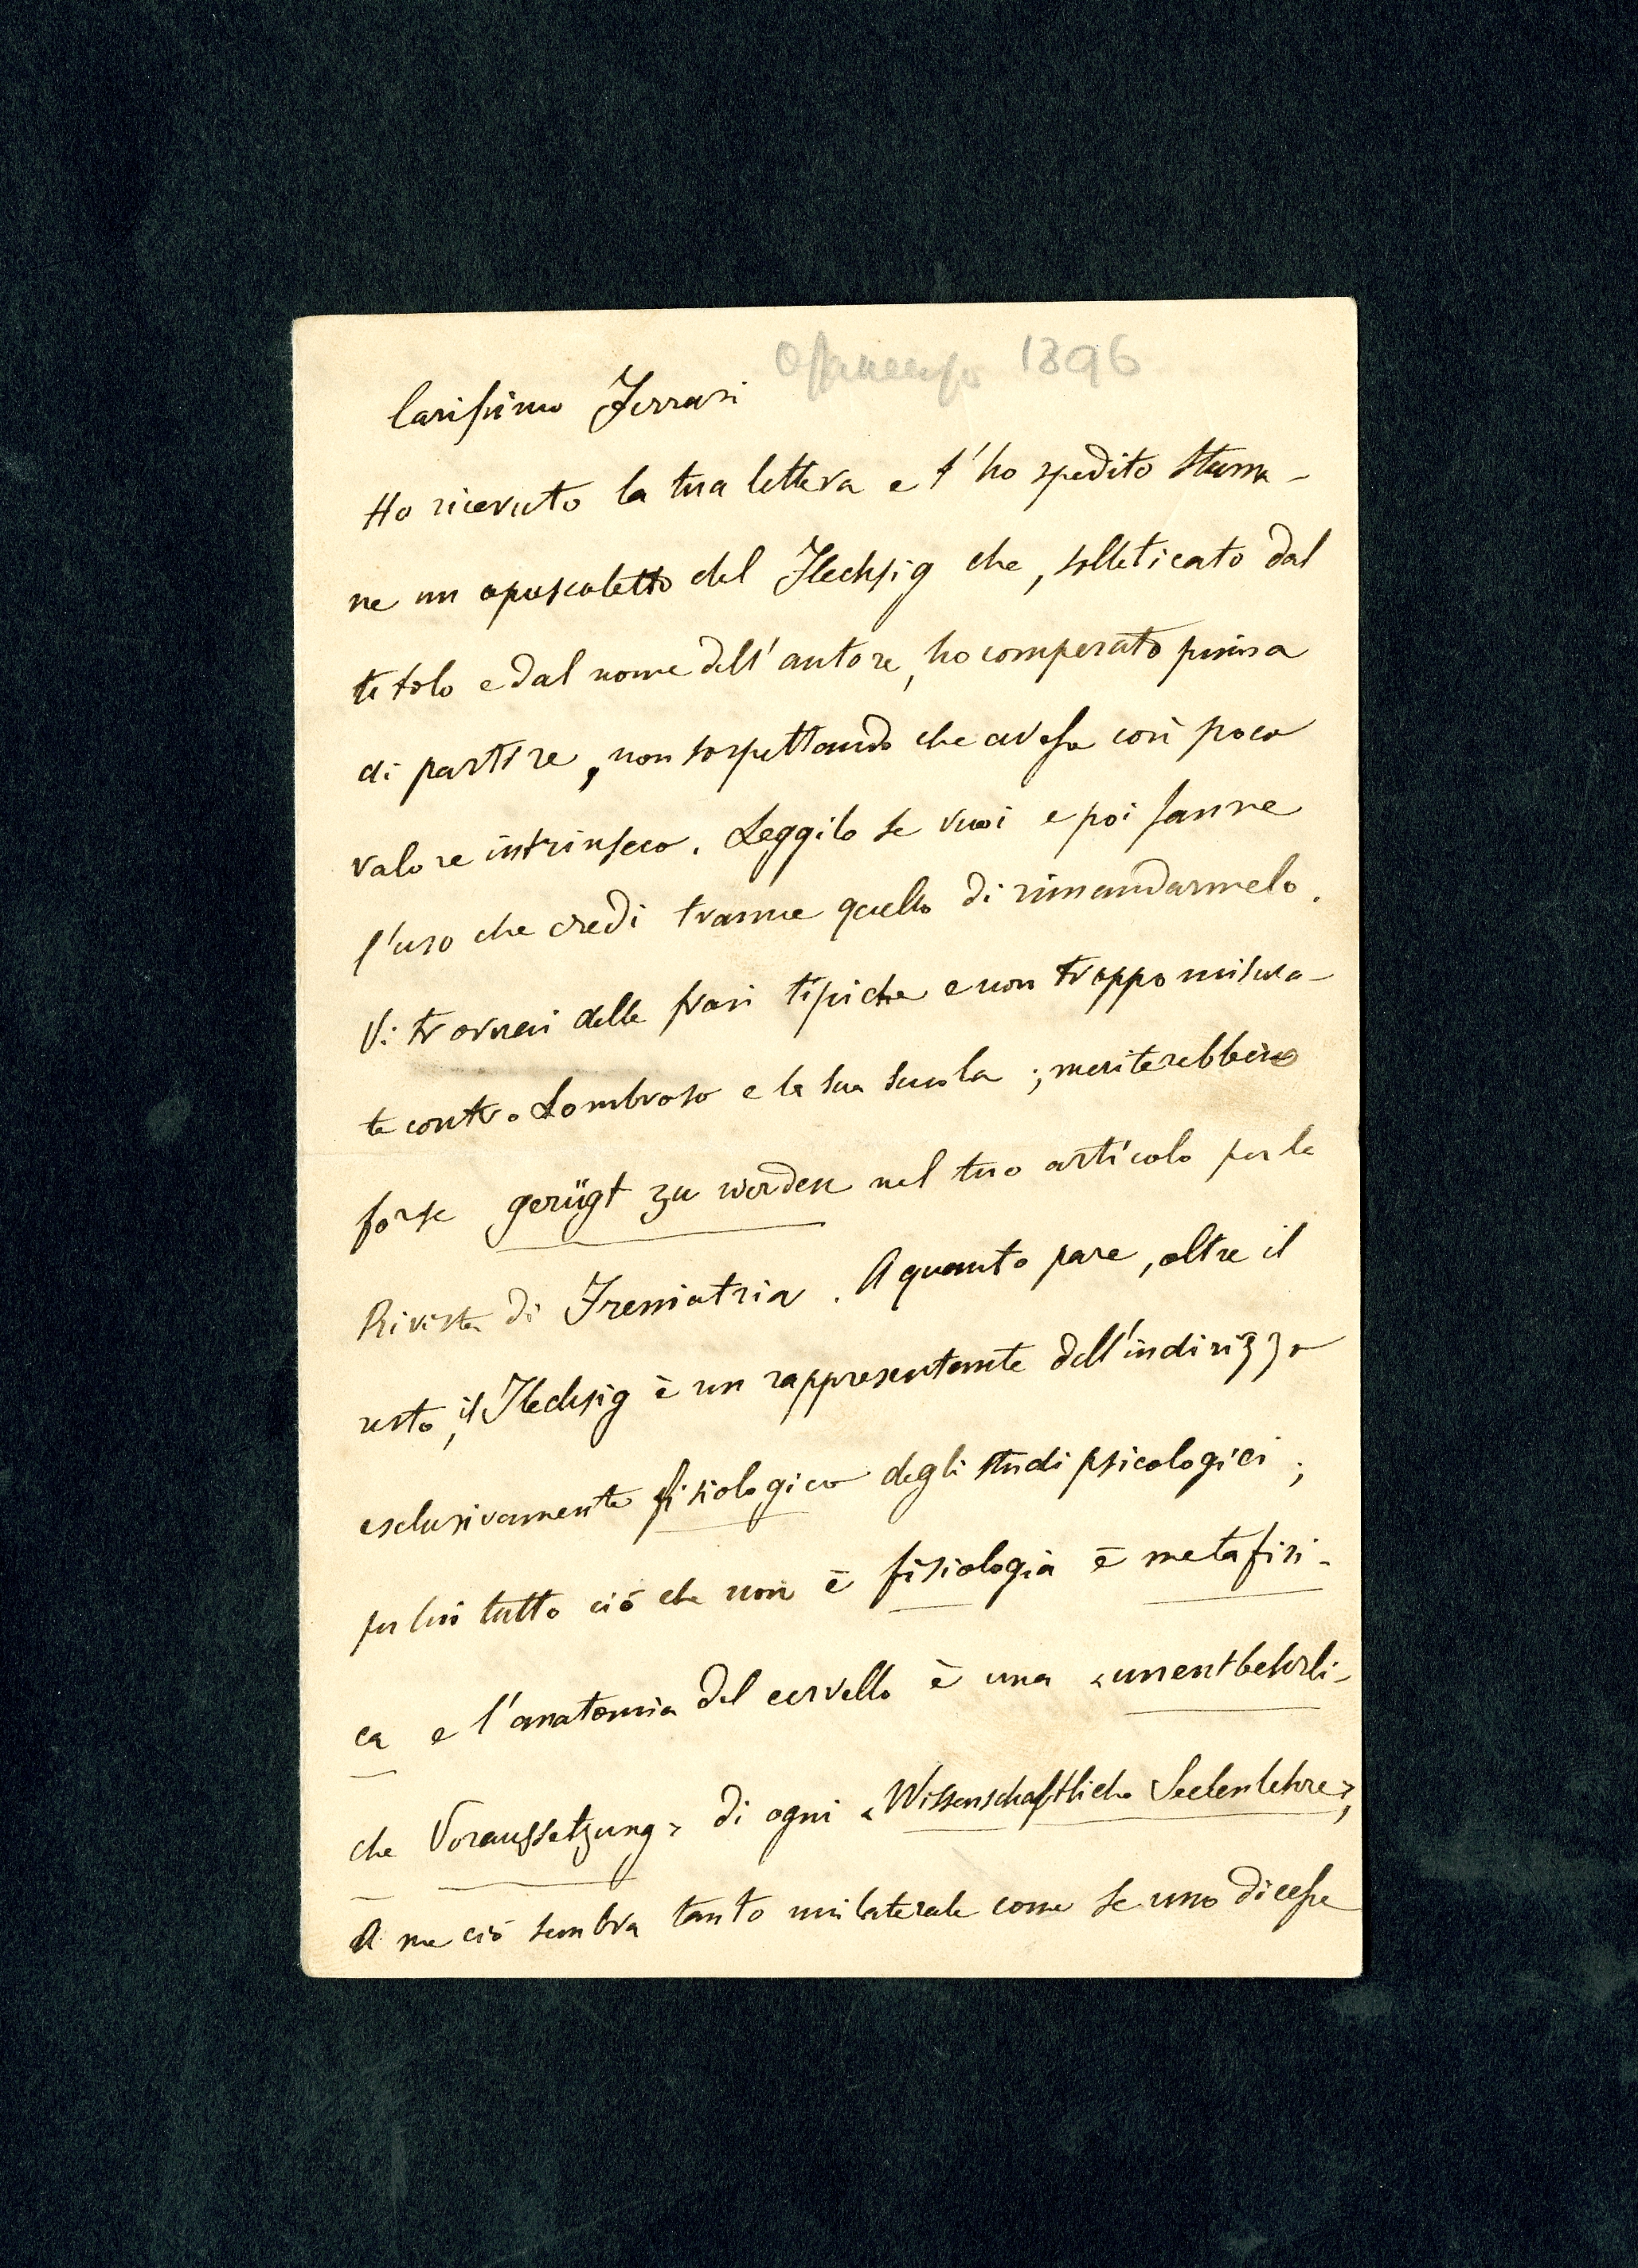 Offanengo 1896
Carissimo Ferrari
Ho ricevuto la tua lettera e t'ho spedito stama-
ne un opuscoletto del Flechsig che, solleticato dal
titolo e dal nome dell'autore, ho comperato prima
di partire, non sospettando che avesse così poco
valore intrinseco. Leggilo se vuoi e poi fanne
l'uso che credi tranne quello di rimandarmelo.
Vi troverai delle frasi tipiche e non troppo misura-
te contro Lombroso e la sua scuola; meriterebbero
forse gerügt zu werden nel tuo articolo per la
Rivista di Freniatria. A quanto pare, oltre il
resto, il Flechsig è un rappresentante dell'indirizzo
esclusivamente fisiologico degli studi psicologici;
per lui tutto ciò che non è fisiologia è metafisi-
ca e l'anatomia del cervello è una «unentbehrli-
che Voraussetzung» di ogni «Wissenschaftliche Seelenlehre»,
A me ciò sembra tanto unilaterale come se uno dicesse